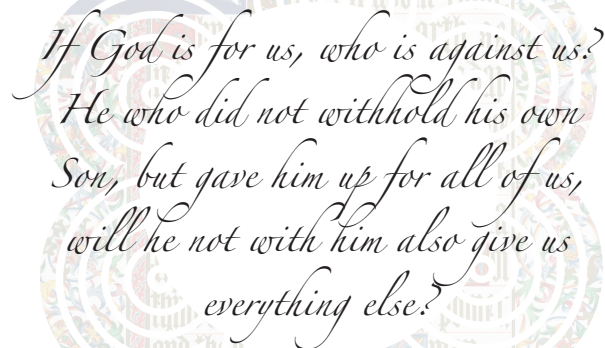 If God is for us, who is against us?
He who did not withhold his own
Son, but gave him up for all of us,
will he not with him also give us
everything else?